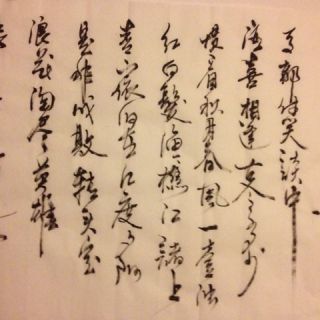 浪花淘尽英雄
是非成敗轉头空
青山依旧在几度夕阳
红白髮漁樵江渚上
慣看秋月春風一壺浊
酒喜相逢古今多少
事都付笑談中